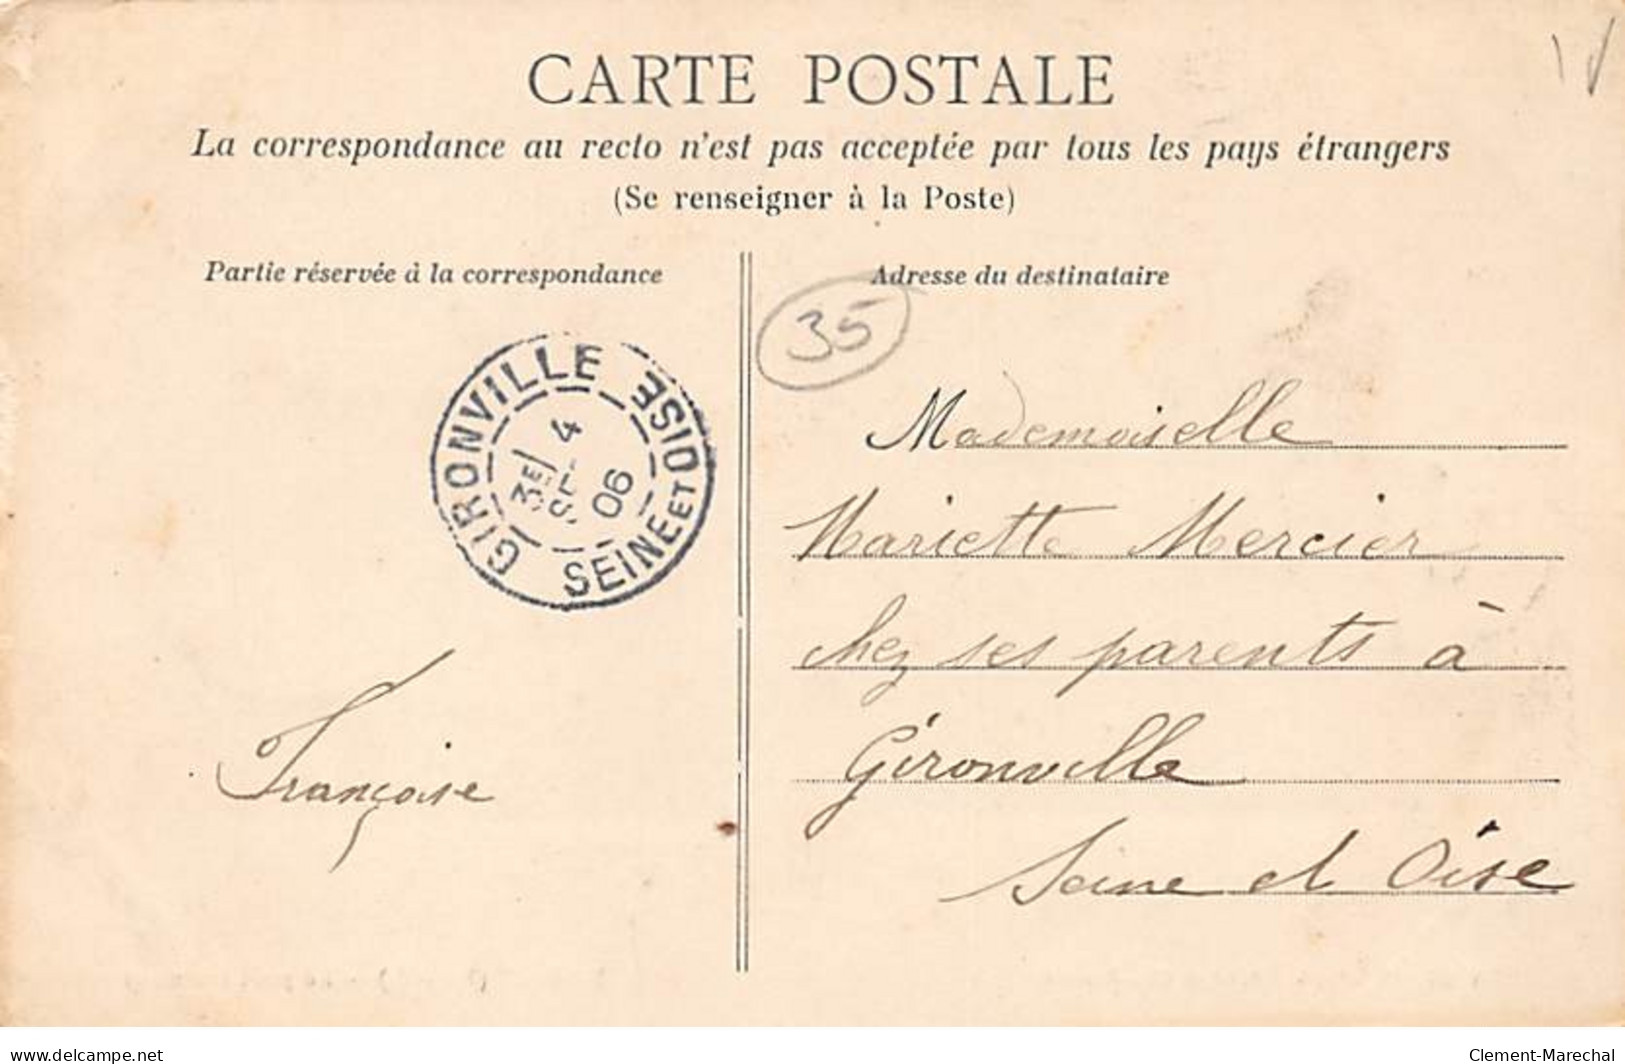 CARTE POSTALE
La correspondance au recto n'est pas acceptée par tous les pays étrangers
(Se renseigner à la Poste)
Partie réservée à la correspondance
Adresse du destinataire
35
GIRONVILLE SEINE ET OISE
3E 4
06
Mademoiselle
Mariette Mercier
chez ses parents à
Gironville
Seine et Oise
Françoise
www.delcampe.net
Clement-Marechal